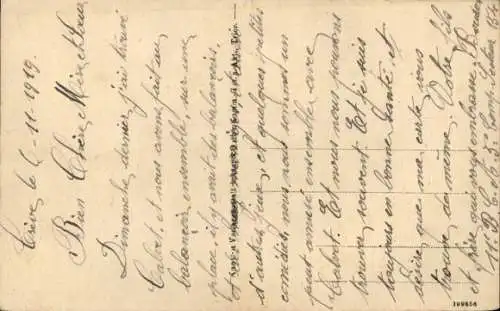 Trèves le 5-11-1919.
Bien Chère Mère et Sœur
Dimanche dernier j'ai trouvé
Calvet, et nous avons fait un
balancier, ensemble, sur une
place, il y avait des balançoirs,
et d'autres jeux, et quelques petites
comédies, nous nous sommes un
peut amusé ensemble avec
Calvet. Et nous nous pouvons
trouver souvent. Et je suis
toujours en bonne santé, et
désire que ma carte vous
trouve de même. Votre fils
et frère qui vous embrasse
199656